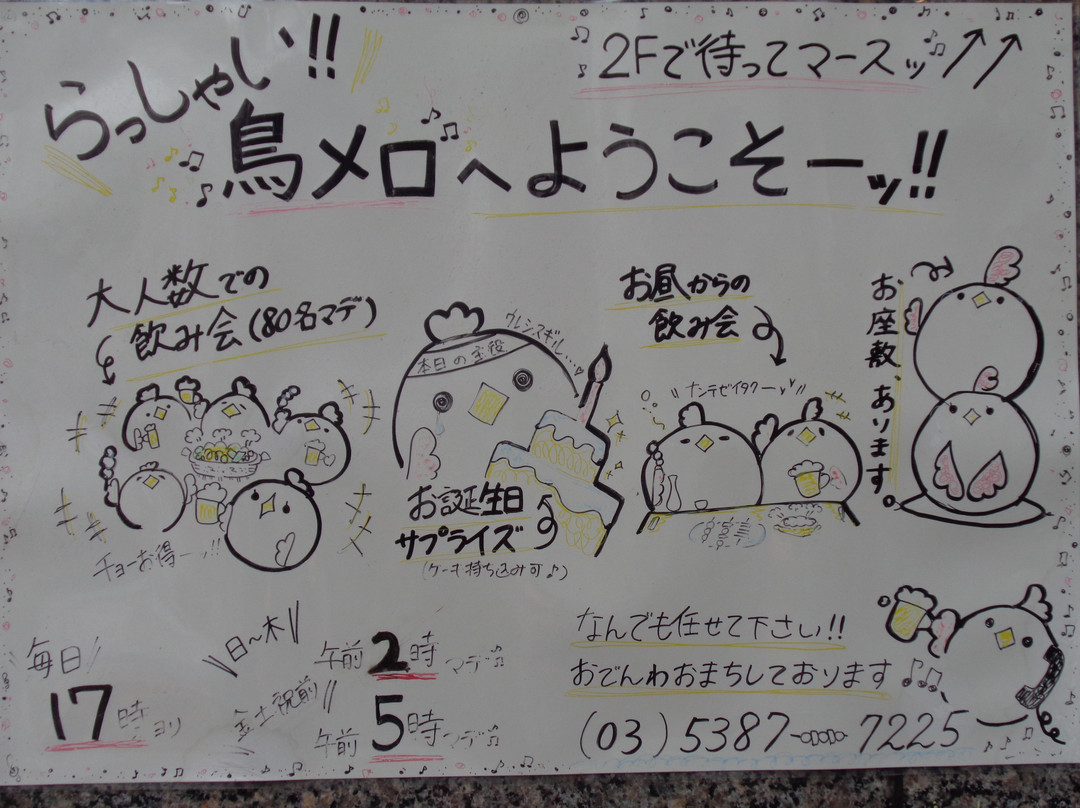 らっしゃい!!
2Fで待ってマースッ
鳥メロへようこそーッ!!
大人数での
飲み会(80名マデ)
チョーお得ーッ!!
ウレシスギル…
本日の主役
お誕生日
サプライズ
(ケーキ持ち込み可♪)
お昼からの
飲み会
ナンテゼイタクー
お座敷、あります。
毎日
17時ヨリ
日~木
午前2時マデ
金土祝前
午前5時マデ
なんでも任せて下さい!!
おでんわおまちしております
(03)5387-7225